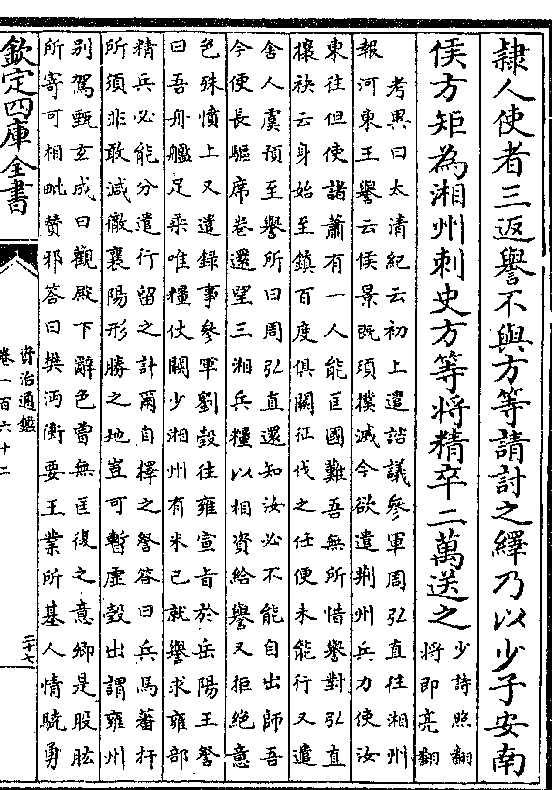 隷人使者三返譽不與方等請討之繹乃以少子安南
侯方矩為湘州刺史方等將精卒二萬送之
少詩照翻
將即亮翻
考異曰太清紀云初上遣諮議參軍周弘直往湘州
報河東王譽云侯景既須撲滅今欲遣荆州兵力使汝
東往但使諸蕭有一人能匡國難吾無所惜譽對弘直
攘袂云身始至鎮百度俱闕征伐之任便未能行又遣
舍人虞預至譽所曰周弘直還知汝必不能自出師吾
今便長驅席卷還望三湘兵糧以相資給譽又拒絶意
色殊憤上又遣録事參軍劉瑴往雍宣旨於岳陽王詧
曰吾舟艦足乗唯糧仗闕少湘州有米已就譽求雍部
精兵必能分遣行留之計爾自擇之詧答曰兵馬蕃扞
所須非敢減撤襄陽形勝之地豈可暫虚瑴出謂雍州
別駕甄玄成曰觀殿下辭色曽無匡復之意卿是股肱
所寄可相毗賛邪答曰樊沔衝要王業所基人情驍勇
欽定四庫全書
資治通鑑
卷一百六十二
二十七